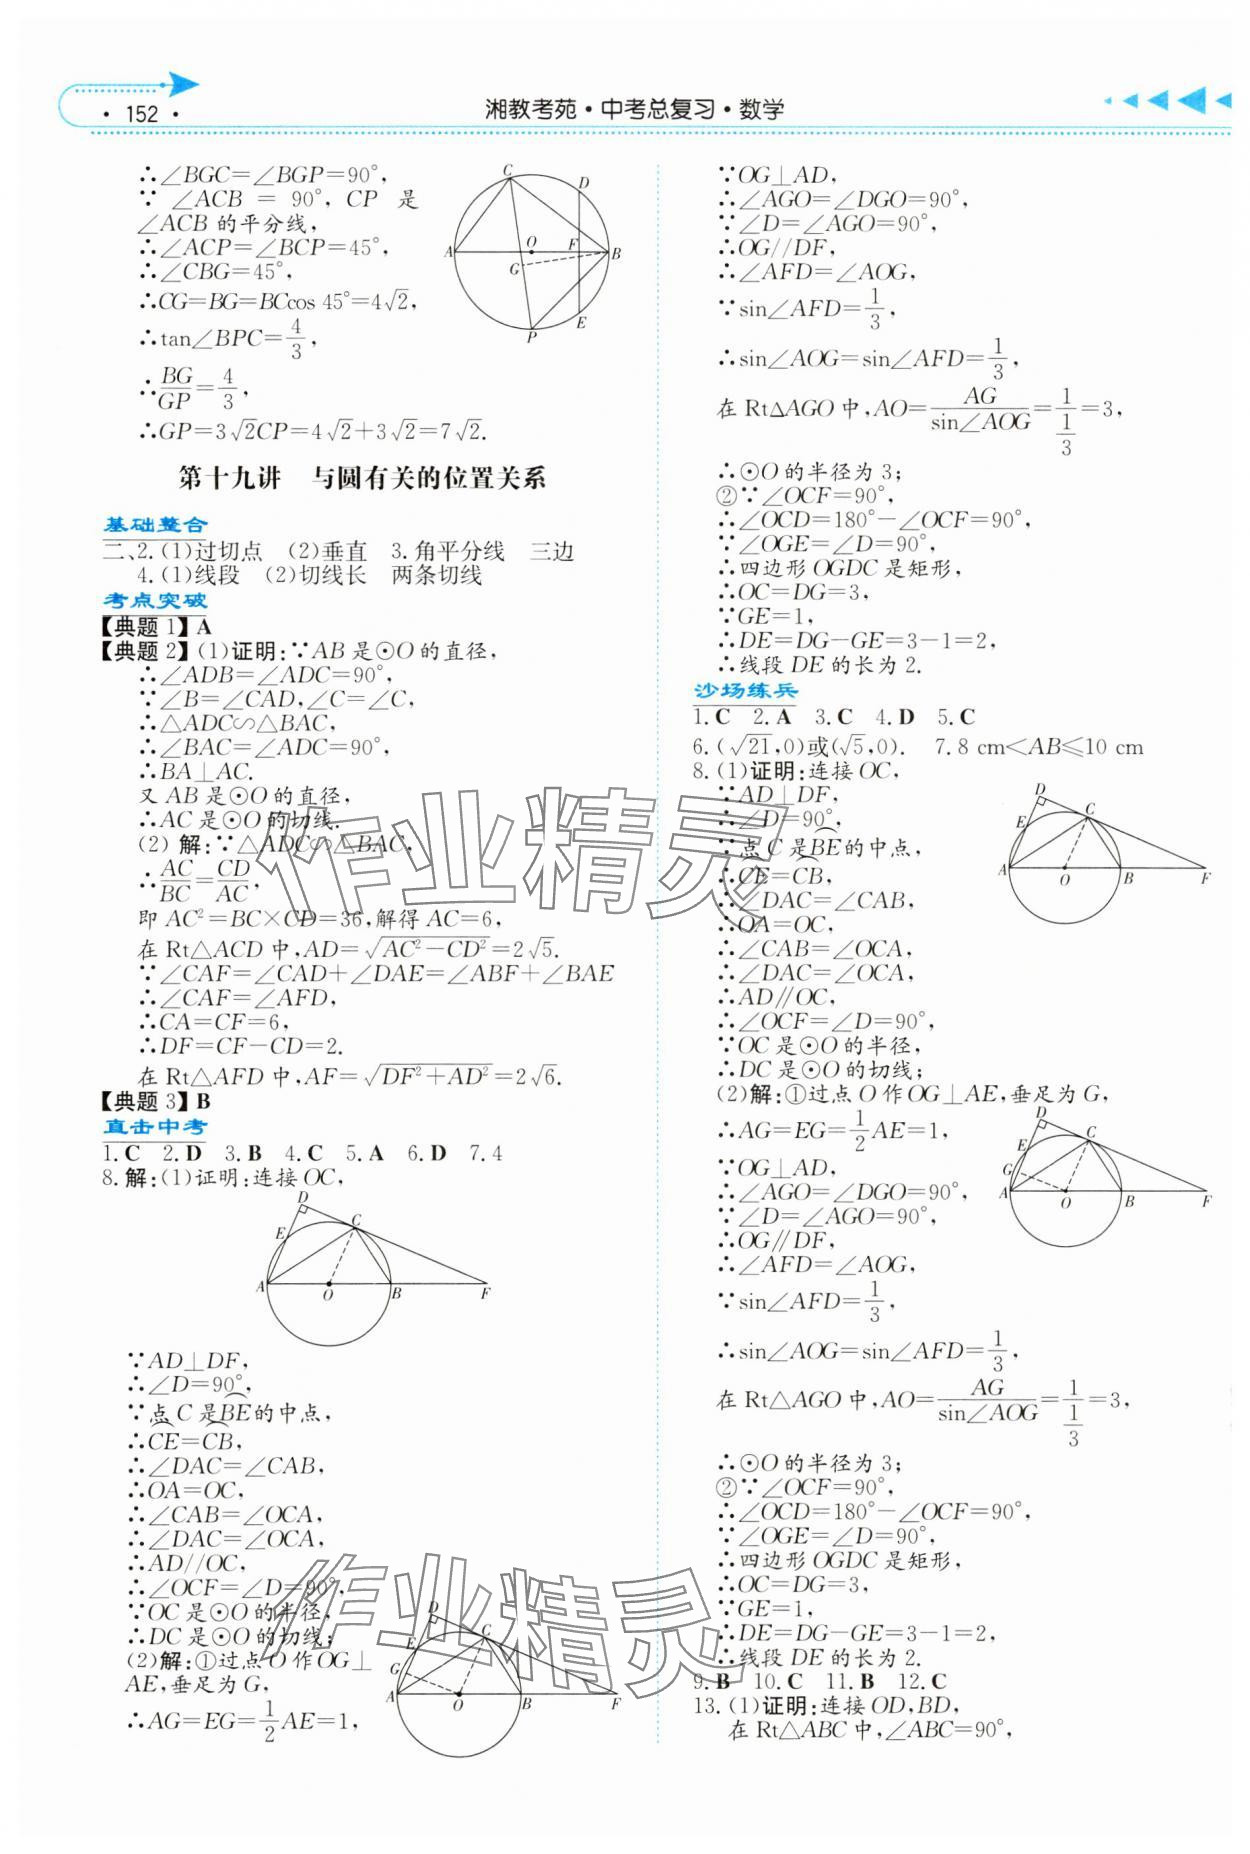 · 152 ·
湘教考苑·中考总复习·数学
∴∠BGC=∠BGP=90°,
∵ ∠ACB = 90°, CP 是
∠ACB 的平分线,
∴∠ACP=∠BCP=45°,
∴∠CBG=45°,
∴CG=BG=BCcos 45°=4√2,
∴tan∠BPC=4/3,
∴BG/GP=4/3,
∴GP=3√2CP=4√2+3√2=7√2.
C
D
A
O
F
B
G
P
E
第十九讲 与圆有关的位置关系
基础整合
二、2.(1)过切点 (2)垂直 3.角平分线 三边
4.(1)线段 (2)切线长 两条切线
考点突破
【典题1】A
【典题2】(1)证明:∵AB是⊙O的直径,
∴∠ADB=∠ADC=90°,
∵∠B=∠CAD,∠C=∠C,
∴△ADC∽△BAC,
∴∠BAC=∠ADC=90°,
∴BA⊥AC.
又AB是⊙O的直径,
∴AC是⊙O的切线.
(2) 解:∵△ADC∽△BAC,
∴AC/BC=CD/AC,
即AC²=BC×CD=36,解得AC=6,
在Rt△ACD中,AD=√(AC²-CD²)=2√5.
∵∠CAF=∠CAD+∠DAE=∠ABF+∠BAE
∴∠CAF=∠AFD,
∴CA=CF=6,
∴DF=CF-CD=2.
在Rt△AFD中,AF=√(DF²+AD²)=2√6.
【典题3】B
直击中考
1.C 2.D 3.B 4.C 5.A 6.D 7.4
8.解:(1)证明:连接OC,
D
C
E
A
O
B
F
∵AD⊥DF,
∴∠D=90°,
∵点C是B͡E的中点,
∴C͡E=C͡B,
∴∠DAC=∠CAB,
∴OA=OC,
∴∠CAB=∠OCA,
∴∠DAC=∠OCA,
∴AD//OC,
∴∠OCF=∠D=90°,
∵OC是⊙O的半径,
∴DC是⊙O的切线;
(2)解:①过点O作OG⊥
AE,垂足为G,
∴AG=EG=1/2AE=1,
D
C
E
G
A
O
B
F
∵OG⊥AD,
∴∠AGO=∠DGO=90°,
∵∠D=∠AGO=90°,
∴OG//DF,
∴∠AFD=∠AOG,
∵sin∠AFD=1/3,
∴sin∠AOG=sin∠AFD=1/3,
在Rt△AGO中,AO=AG/sin∠AOG=1/(1/3)=3,
∴⊙O的半径为3;
②∵∠OCF=90°,
∴∠OCD=180°-∠OCF=90°,
∵∠OGE=∠D=90°,
∴四边形OGDC是矩形,
∴OC=DG=3,
∵GE=1,
∴DE=DG-GE=3-1=2,
∴线段DE的长为2.
沙场练兵
1.C 2.A 3.C 4.D 5.C
6.(√21,0)或(√5,0). 7.8 cm<AB≤10 cm
8.(1)证明:连接OC,
∵AD⊥DF,
∴∠D=90°,
∵点C是B͡E的中点,
∴C͡E=C͡B,
∴∠DAC=∠CAB,
∴OA=OC,
∴∠CAB=∠OCA,
∴∠DAC=∠OCA,
∴AD∥OC,
∴∠OCF=∠D=90°,
∵OC是⊙O的半径,
∴DC是⊙O的切线;
D
C
E
A
O
B
F
(2)解:①过点O作OG⊥AE,垂足为G,
∴AG=EG=1/2AE=1,
∵OG⊥AD,
∴∠AGO=∠DGO=90°,
∵∠D=∠AGO=90°,
∴OG∥DF,
∴∠AFD=∠AOG,
∵sin∠AFD=1/3,
∴sin∠AOG=sin∠AFD=1/3,
在Rt△AGO中,AO=AG/sin∠AOG=1/(1/3)=3,
D
C
E
G
A
O
B
F
∴⊙O的半径为3;
②∵∠OCF=90°,
∴∠OCD=180°-∠OCF=90°,
∵∠OGE=∠D=90°,
∴四边形OGDC是矩形,
∴OC=DG=3,
∵GE=1,
∴DE=DG-GE=3-1=2,
∴线段DE的长为2.
9.B 10.C 11.B 12.C
13.(1)证明:连接OD,BD,
在Rt△ABC中,∠ABC=90°,
作业精灵
作业精灵